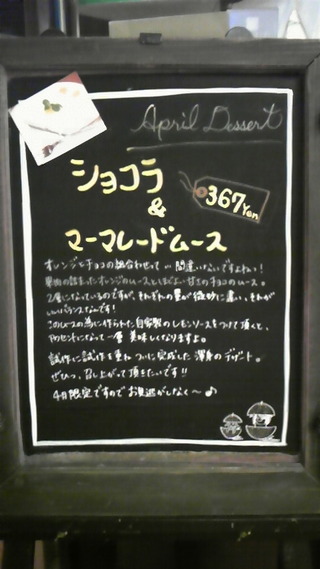 April Dessert
ショコラ
&
マーマレードムース
367Yen
オレンジとチョコの組合わせって 間違いないですよねっ!
果肉の詰まったオレンジのムースとほどよい甘さのチョコのムース。
2層になっているのですが、それぞれの量が微妙に違い、それが
いいバランスなんです!
このムースの為に作られた自家製のレモンソースをつけて頂くと、
アクセントになって一層 美味しくなりますよ。
試作に試作を重ね ついに完成した 渾身のデザート。
ぜひっ、召し上がって頂きたいです!!
4月限定ですので お見逃がしなく〜♪